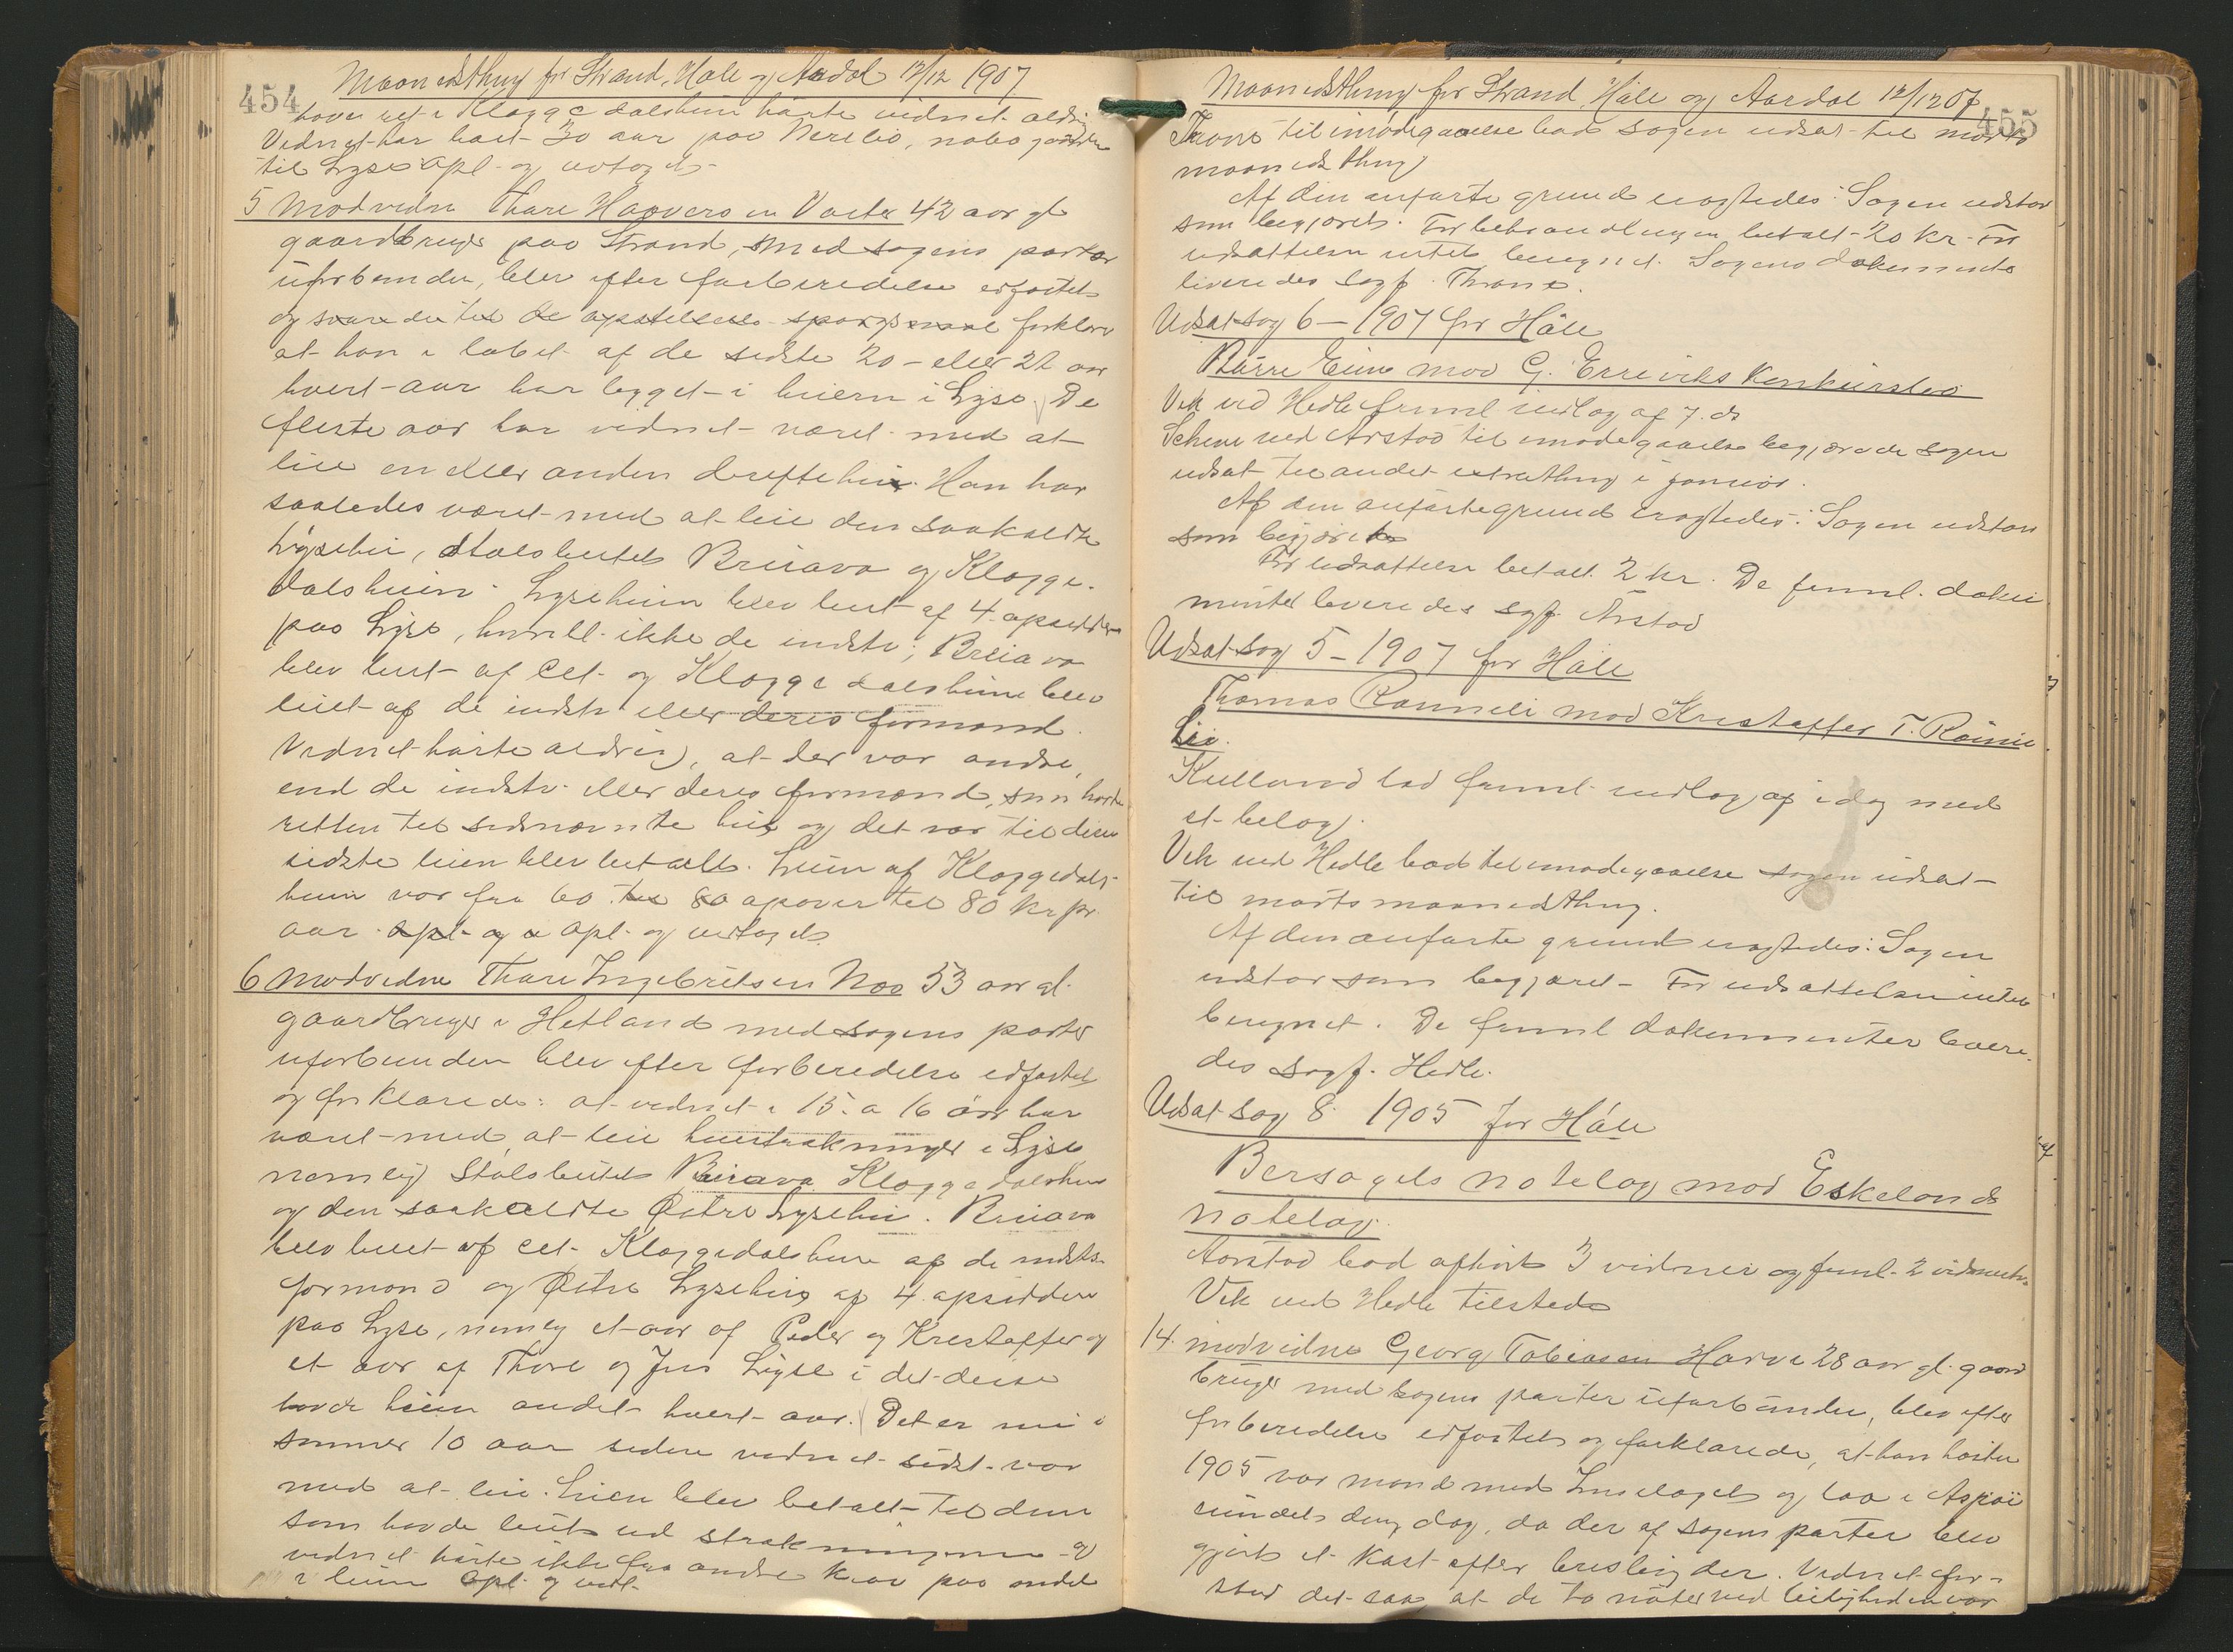 454
Maanedsthing for Strand, Høle og Aardal 12/12 1907
havn ret i Kloggedalsheien hørte vidnet aldrig
Vidnet har boet 30 aar paa Nerebø, nabogaarden
til Lyse opl. og vedtaget
5 Modvidne Thore Haavorsen Voster 42 aar gl
gaardbruger paa Strand, med sagens parter
uforbunden, blev efter forberedelse edfæstet
og svarede til de opstillede spørgsmaal forklare
at han i løbet af de sidste 20 - eller 22 aar
hvert aar har ligget i heiern i Lyse. De
fleste aar har vidnet været med at
leie en eller anden driftehei. Han har
saaledes været med at leie den saakaldte
Lysehei, Stølsbeitet Breiava og Klogge-
dalsheien. Lyseheien blev leiet af 4 opsiddere
paa Lyse, hvorbl. ikke de indstv; Breiava
blev leiet af et og Kloggedalsheien blev
leiet af de indstv eller deres formænd.
Vidnet hørte aldrig, at der var andre,
end de indstv. eller deres formænd, som havde
retten til sidnævnte hei og det var til disse
sidste leien blev betalt. Leien af Kloggedals-
heien var fra 60 til 80 opover til 80 kr pr.
aar opl. og v opl. og vedtaget.
6 Modvidne Thore Ingebretsen Noo 53 aar gl.
gaardbruger i Hetland med sagens parter
uforbunden blev efter forberedelse edfæstet
og forklarede: at vidnet i 15 a 16 aar har
været med at leie heiestrækninger i Lyse
nemlig Stølsbeitet Breiava Kloggedalsheien
og den saakaldte Østre Lysehei. Breiava
blev leiet af et Kloggedalsheien af de indsts.
formænd og Østre Lysehei af 4 opsiddere
paa Lyse, nemlig et aar af Peder og Krestoffer og
et aar af Thore og Jens Lyse i det disse
havde heien andet hvert aar. Det er nu i
sommer 10 aar siden vidnet sidst var
med at leie. Leien blev betalt til dem
som havde leiet ud strækningerne og
vidnet hørte ikke fra andre krav paa andel
i leien opl. og vedt.
455
Maanedsthing for Strand Høle og Aardal 12/12 07
Thrane til imødegaaelse bad sagen udsat til marts
maanedsthing
Af den anførte grund eragtedes: Sagen udstaar
som begjæret. For behandlingen betalt 20 kr. For
udsættelsen intet beregnet. Sagens dokumenter
leveredes sagf. Thrane.
Udsat sag 6 - 1907 for Høle
Børre Eine mod G. Erreviks Konkursbo
Vek ved Hedle freml indlag af 7. ds
Scheie ved Arstad til imødegaaelse begjærede sagen
udsat til andet extrathing i januar.
Af den anførte grund eragtedes: Sagen udstaar
som begjæret
For udsættelse betalt 2 kr. De freml. doku
menter leveredes sgf. Årstad
Udsat sag 5 - 1907 for Høle
Thomas Rønneli mod Kristoffer T. Rønne
lie.
Kielland lod freml. indlag af idag med
et belag.
Vek ved Hedle bad til imødegaaelse sagen udsat
til marts maanedsthing.
Af den anførte grund eragtedes: Sagen
udstaar som begjæret - For udsættelsen intet
beregnet. De freml dokumenter levere-
des sagf. Hedle.
Udsat sag 8. 1905 for Høle
Bersagels notelag mod Eskelands
notelag.
Aarstad lod afhøre 3 vidner og freml. 2 vidnestv.
Vek ved Hedle tilstede
14. modvidne Georg Tobiasen Høive 28 aar gl. gaard
bruger med sagens parter uforbunden, blev efter
forberedelse edfæstet og forklarede, at han høsten
1905 var mand med laget og laa i Aspøi
sundet den dag, da der af sagens parter blev
gjort et kast efter brisling der. Vidnet for-
stod det saa at de to nøter ved leiligheden var